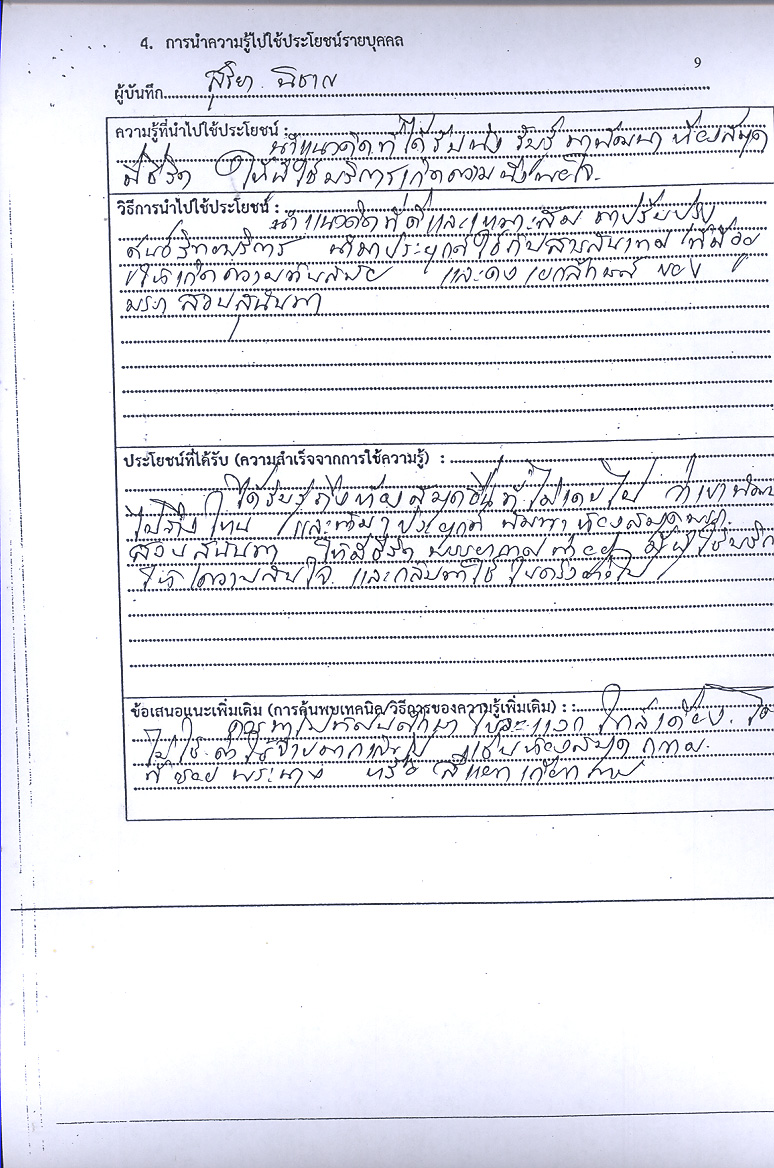 4. การนำความรู้ไปใช้ประโยชน์รายบุคคล
9
ผู้บันทึก สุริยา
ความรู้ที่นำไปใช้ประโยชน์ :
นำแนวคิดที่ได้รับฟัง รับรู้ มาพัฒนา ห้องสมุด
มีชีวิต ให้ผู้ใช้บริการเกิดความพึงพอใจ.
วิธีการนำไปใช้ประโยชน์ :
นำแนวคิดที่ดีและเหมาะสม มาปรับปรุง
บริการ นำมาประยุกต์ใช้กับสารสนเทศ ที่มีอยู่
ให้เกิดความทันสมัย และคงเอกลักษณ์ ของ
สวนสุนันทา
ประโยชน์ที่ได้รับ (ความสำเร็จจากการใช้ความรู้) :
ได้รับรู้ถึงห้องสมุดอื่นที่ไม่เคยไป
ไปถึงไหน และนำมาประยุกต์ พัฒนาห้องสมุด
สวนสุนันทา ให้มีชีวิต บรรยากาศ
ให้ความสนใจ และกลับมาใช้ ในครั้งต่อไป
ข้อเสนอแนะเพิ่มเติม (การค้นพบเทคนิค/วิธีการของความรู้เพิ่มเติม) : :
ใกล้เคียง.
ไม่ใช้ค่าใช้จ่ายมากเกินไป เช่นห้องสมุด กทม.
ที่ซอย พระนาง หรือ